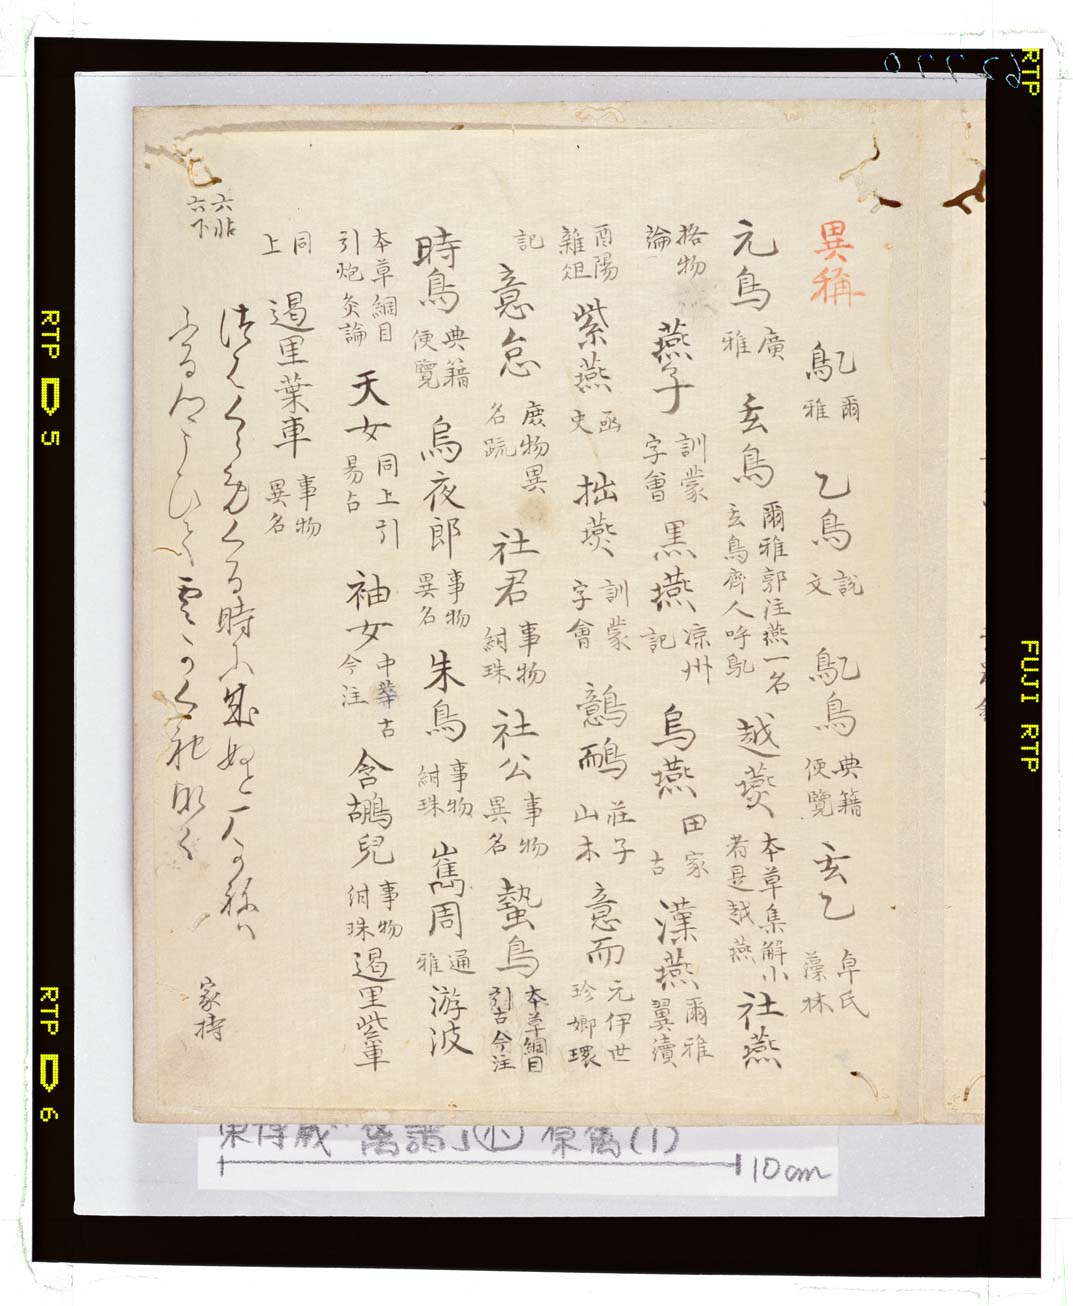 異稱
鳦 爾雅 乙鳥 説文 鳦鳥 典籍便覽 玄乙 卓氏藻林
元鳥 廣雅 玄鳥 爾雅郭注燕一名玄鳥齊人呼鳦 越燕 本草集解小者是越燕 社燕
格物論 燕子 訓蒙字會 黒燕 凉州記 烏燕 田家古 漢燕 爾雅翼瀆
酉陽雜俎 紫燕 函史 拙燕 訓蒙字會 鷾鴯 莊子山木 意而 元伊世珍嫏環
記 意怠 庶物異名䟽 社君 事物紺珠 社公 事物異名 蟄鳥 本草綱目引古今注
時鳥 典籍便覽 烏夜郎 事物異名 朱鳥 事物紺珠 嶲周 通雅 游波
本草綱目引炮炙論 天女 同上引易占 袖女 中華古今注 含鷫兒 事物紺珠 遏里紫車
同上 遏里葉車 事物異名
六帖六下
つはくらめくる時に成ぬと人は
家持
東博蔵
10cm
RTP
5
RTP
6
RTP
FUJI RTP